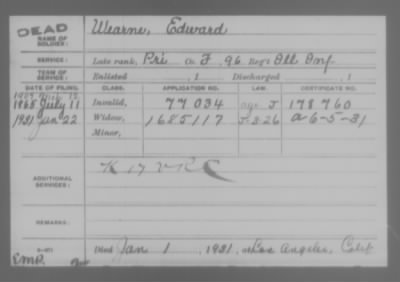 DEAD Wearne, Edward
NAME OF SOLDIER:
SERVICE: Late rank, Pri Co. F, 96 Reg't Ill Inf
TERM OF SERVICE: Enlisted , 1 Discharged , 1
DATE OF FILING. CLASS. APPLICATION NO. LAW. CERTIFICATE NO.
July 11 Invalid, 77034 178760
1931 Jan 22 Widow, 1685117 a-6-5-31
Minor,
ADDITIONAL SERVICES: K 17 VRC
REMARKS:
Died Jan 1, 1931, at Los Angeles, Calif